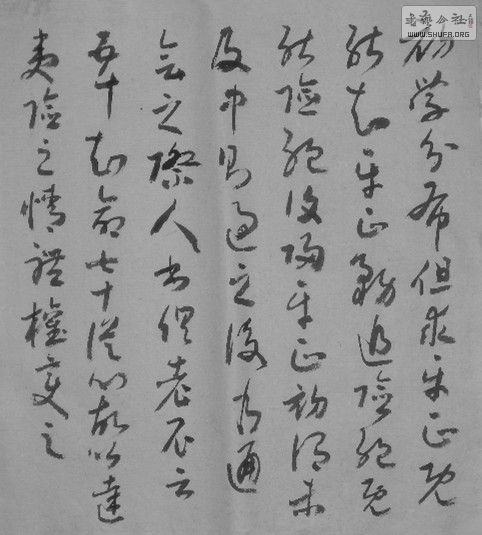 書藝公社
WWW.SHUFA.ORG
初学分布但求平正既
能知平正務追險絕既
能險絕復歸平正初謂未
及中則過之後乃通
会之際人書俱老尼云
五十知命七十從心故以達
夷險之情體權變之